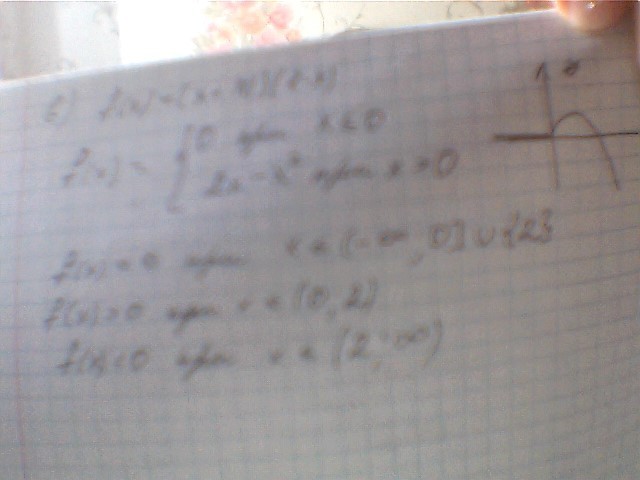 f(x) =
{ 0 при x ≤ 0
2x - x² при x > 0
f(x) = 0 при x ∈ (-∞, 0] ∪ {2}
f(x) > 0 при x ∈ (0, 2)
f(x) < 0 при x ∈ (2, ∞)